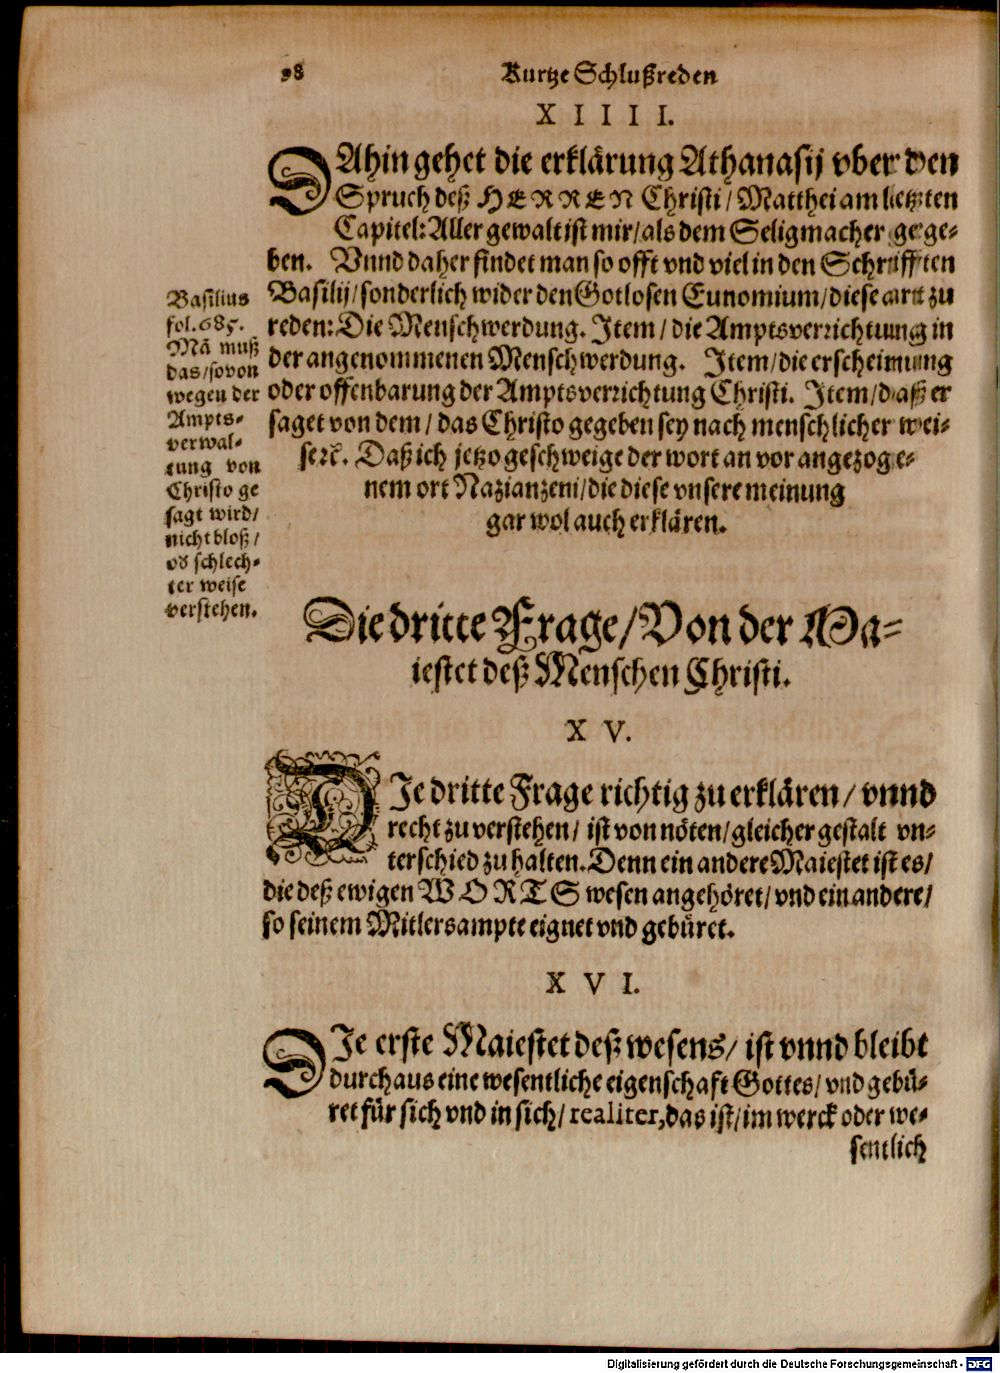 98
Kurtze Schlußreden
X I I I I.
DAhin gehet die erklärung Athanasij vber den
Spruch deß HERREN Christi / Matthei am letzten
Capitel: Aller gewalt ist mir / als dem Seligmacher gege-
ben. Vnnd daher findet man so offt vnd viel in den Schrifften
Basilij / sonderlich wider den Gotlosen Eunomium / diese art zu
reden: Die Menschwerdung. Item / die Amptsverrichtung in
der angenommenen Menschwerdung. Item / die erscheinung
oder offenbarung der Amptsverrichtung Christi. Item / daß er
saget von dem / das Christo gegeben sey nach menschlicher wei-
se ꝛc. Daß ich jetzo geschweige der wort an vor angezoge-
nem ort Nazianzeni / die diese vnsere meinung
gar wol auch erklären.
Basilius
fol. 685.
Mã muß
das / so von
wegen der
Ampts-
verwal-
tung von
Christo ge
sagt wird /
nicht bloß /
oď schlech-
ter weise
verstehen.
Die dritte Frage / Von der Ma-
iestet deß Menschen Christi.
X V.
DIe dritte Frage richtig zu erklären / vnnd
recht zu verstehen / ist von nöten / gleicher gestalt vn-
terschied zu halten. Denn ein andere Maiestet ist es /
die deß ewigen WORTS wesen angehöret / vnd ein andere /
so seinem Mitlersampte eignet vnd gebüret.
X V I.
DIe erste Maiestet deß wesens / ist vnnd bleibt
durchaus eine wesentliche eigenschaft Gottes / vnd gebü-
ret für sich vnd in sich / realiter, das ist / im werck oder we-
sentlich
Digitalisierung gefördert durch die Deutsche Forschungsgemeinschaft - DFG